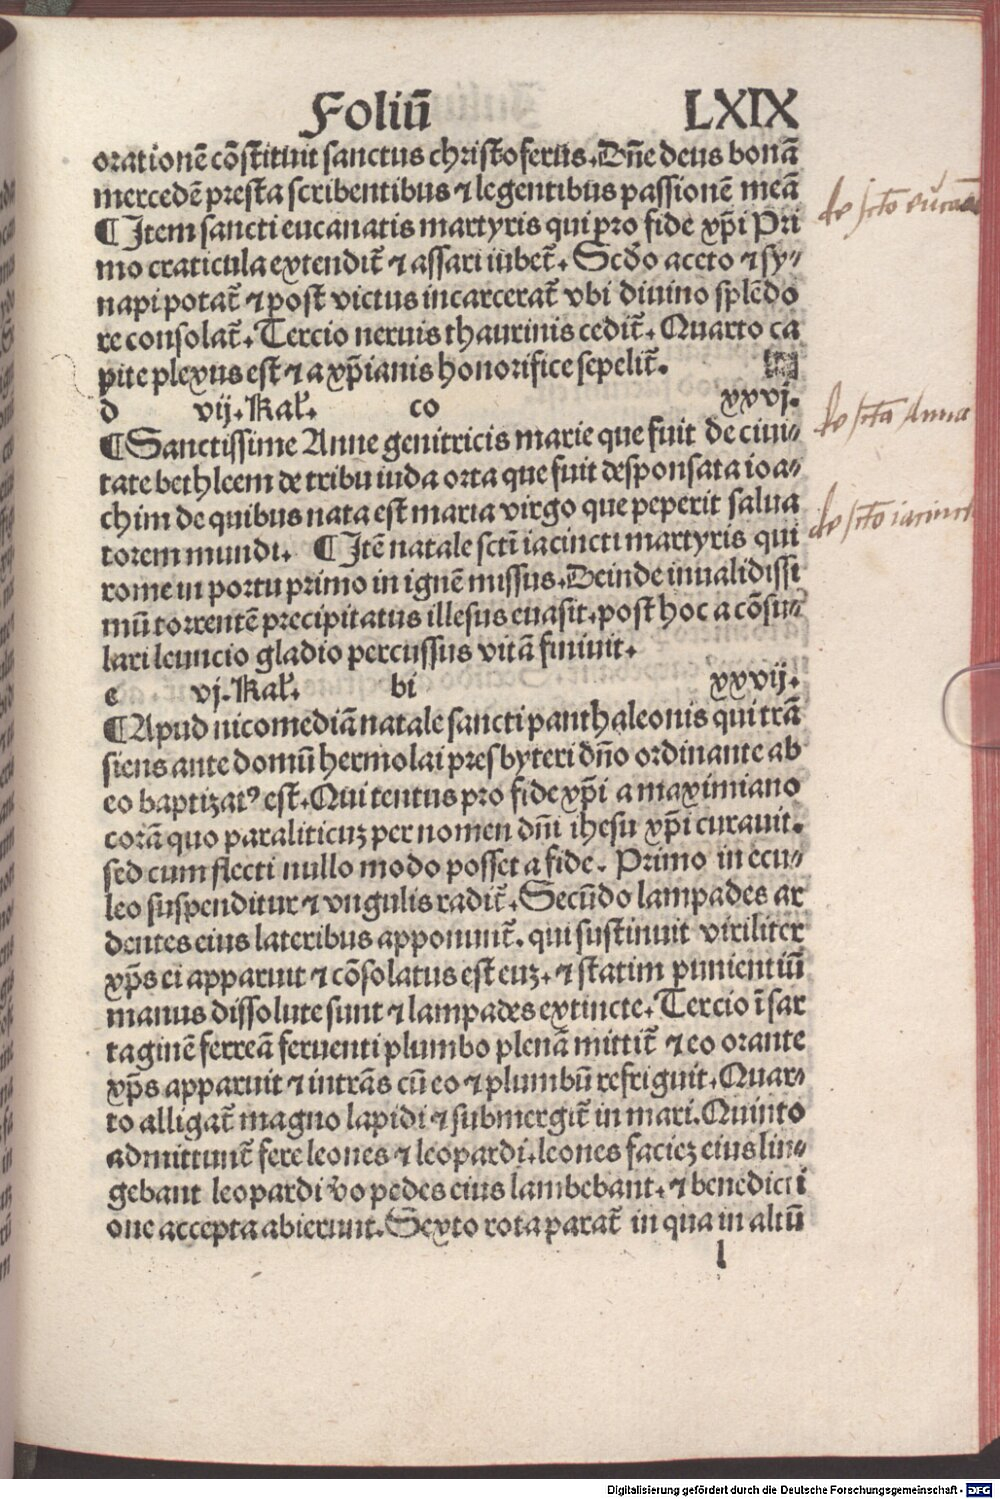 Foliū LXIX
orationē cōstituit sanctus christoferus. Dn̄e deus bonā
mercedē presta scribentibus ⁊ legentibus passionē meā
¶ Item sancti eucanatis martyris qui pro fide xp̄i Pri
mo craticula extendit̄ ⁊ assari iubet̄. Scd̓o aceto ⁊ sy⸗
napi potat̄ ⁊ post victus incarcerat̄ vbi diuino splēdo
re consolat̄. Tercio neruis thaurinis cedit̄. Quarto ca
pite plexus est ⁊ a xp̄ianis honorifice sepelit̄.
d vij. Kal̓. co xxvj.
¶ Sanctissime Anne genitricis marie que fuit de ciui⸗
tate bethleem de tribu iuda orta que fuit desponsata ioa⸗
chim de quibus nata est maria virgo que peperit salua
torem mundi. ¶ Itē natale sctī iacincti martyris qui
rome in portu primo in ignē missus. Deinde in validissi
mū torrentē precipitatus illesus euasit. post hoc a cōsu⸗
lari leuncio gladio percussus vitā finiuit.
e vj. Kal̓. bi xxvij.
¶ Apud nicomediā natale sancti panthaleonis qui trā
siens ante domū hermolai presbyteri dn̄o ordinante ab
eo baptizatꝰ est. Qui tentus pro fide xp̄i a maximiano
corā quo paraliticuz per nomen dn̄i ihesu xp̄i curauit.
sed cum flecti nullo modo posset a fide. Primo in ecu⸗
leo suspenditur ⁊ vngulis radit̄. Secūdo lampades ar
dentes eius lateribus apponunt̄. qui sustinuit viriliter
xp̄s ei apparuit ⁊ cōsolatus est euz. ⁊ statim punientiū
manus dissolute sunt ⁊ lampades extincte. Tercio ī sar
taginē ferreā feruenti plumbo plenā mittit̄ ⁊ eo orante
xp̄s apparuit ⁊ intrās cū eo ⁊ plumbū refriguit. Quar⸗
to alligat̄ magno lapidi ⁊ submergit̄ in mari. Quinto
admittunt̄ fere leones ⁊ leopardi. leones faciez eius lin⸗
gebant leopardi v̓o pedes eius lambebant. ⁊ benedicti
one accepta abierunt. Sexto rota parat̄ in qua in altū
l
de scto
de scta Anna
de scto iacinct
Digitalisierung gefördert durch die Deutsche Forschungsgemeinschaft - DFG